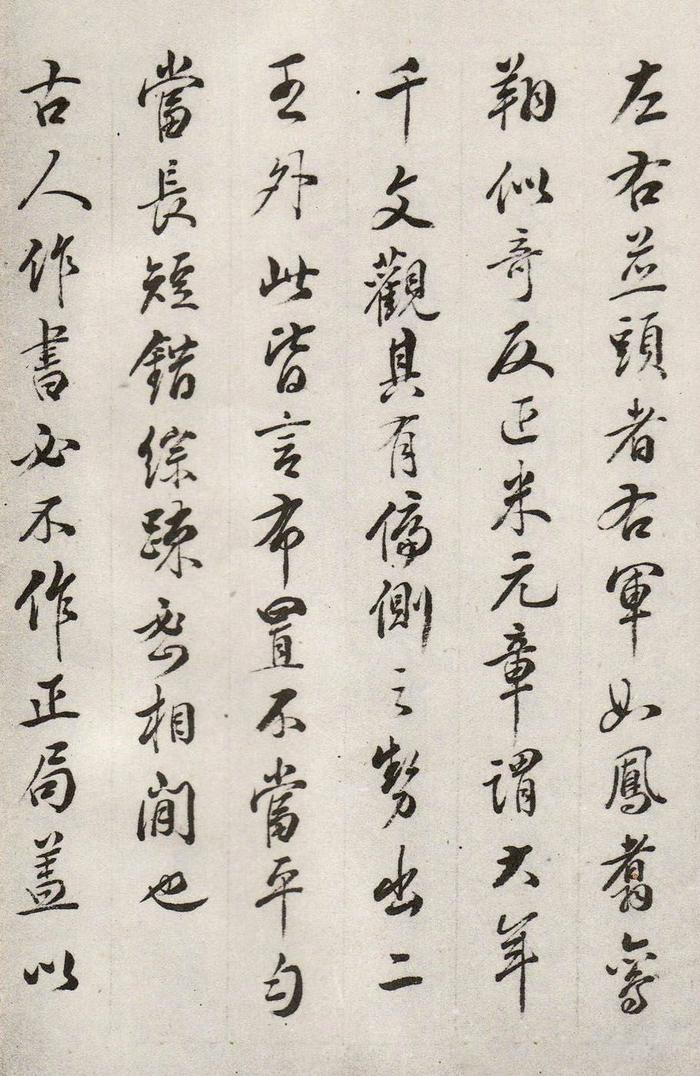 左右並頭者右軍如鳳翥鸞
翔似奇反正米元章謂大年
千文觀其有偏側之勢出二
王外此皆言布置不當平勻
當長短錯綜疎密相間也
古人作書必不作正局蓋以